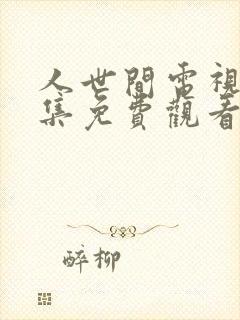 人世間電視
集免費觀看
醉柳